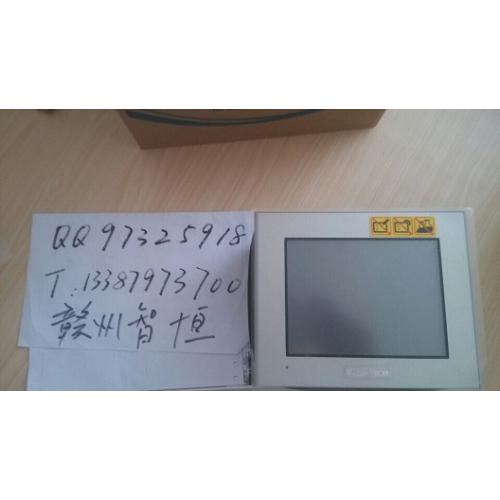 QQ 97325918
T:13387973700
赣州智恒